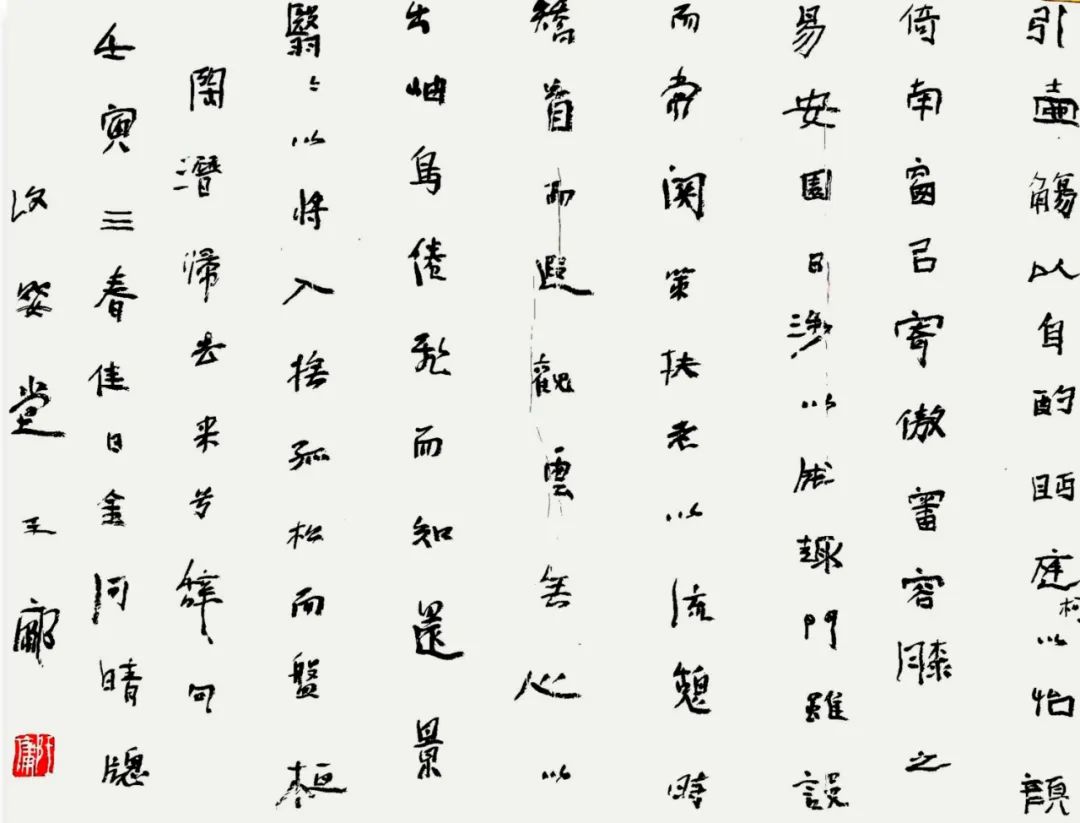 引壺觴以自酌眄庭柯以怡顏
倚南窗㠯寄傲審容膝之
易安園日涉以成趣門雖設
而常関策扶老以流憩時
矯首而遐觀雲無心以
出岫鳥倦飛而知還景
翳〻以將入撫孤松而盤桓
陶潛歸去来兮辭句
壬寅三春佳日金晴牕
堂王